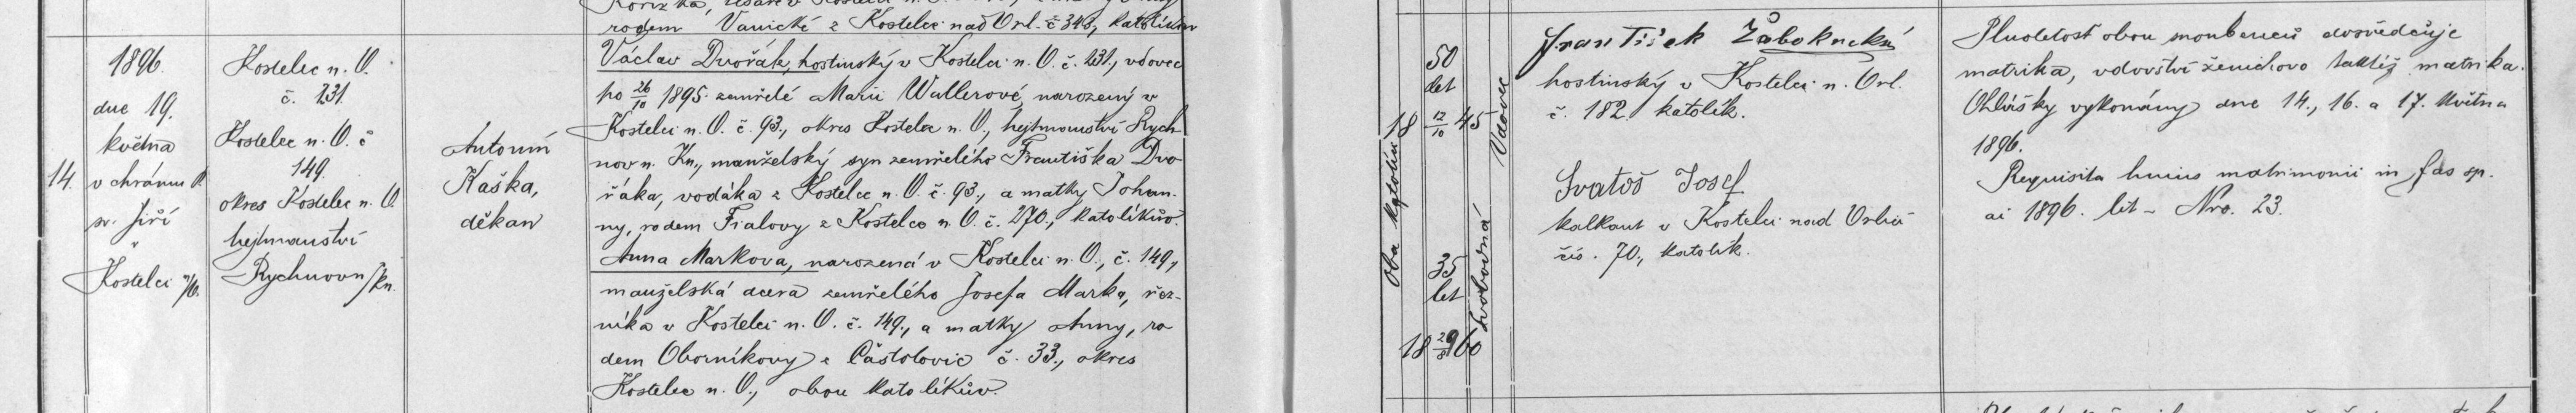 rodem Vanické z Kostelce nad Orl. č 348, katolíkův
14.
1896.
dne 19.
května
v chrámu P.
sv. Jiří
v
Kostelci n/O.
Kostelec n. O.
č. 231.
Kostelec n. O. č
149.
okres Kostelec n. O.
hejtmanství
Rychnov n/Kn.
Antonín
Kaška,
děkan
Václav Dvořák, hostinský v Kostelci n. O. č. 231., vdovec
po 26/10 1895 zemřelé Marii Wallerové, narozený v
Kostelci n. O. č. 93., okres Kostelec n. O., hejtmanství Rych
nov n. Kn., manželský syn zemřelého Františka Dvo
řáka, vodáka z Kostelce n. O. č. 93., a matky Johan-
ny, rodem Fialovy z Kostelce n. O. č. 270., katolíkův.
Anna Markova, narozená v Kostelci n. O., č. 149.,
manželská dcera zemřelého Josefa Marka, řez-
níka v Kostelci n. O. č. 149., a matky Anny, ro
dem Oborníkovy z Častolovic č. 33., okres
Kostelec n. O., obou katolíkův.
Oba katolíci
50
let
18 12/10 45
Vdovec
35
let
18 29/8 60
Svobodná
František Žabokrtský
hostinský v Kostelci n. Orl.
č. 182. katolík.
Svatoš Josef
kalkant v Kostelci nad Orlicí
čís. 70., katolík.
Plnoletost obou snoubenců dosvědčuje
matrika, vdovství ženichovo taktéž matrika.
Ohlášky vykonány dne 14., 16. a 17. května
1896.
Requisita huius matrimonii in fas sp.
ai 1896. lit - Nro. 23.